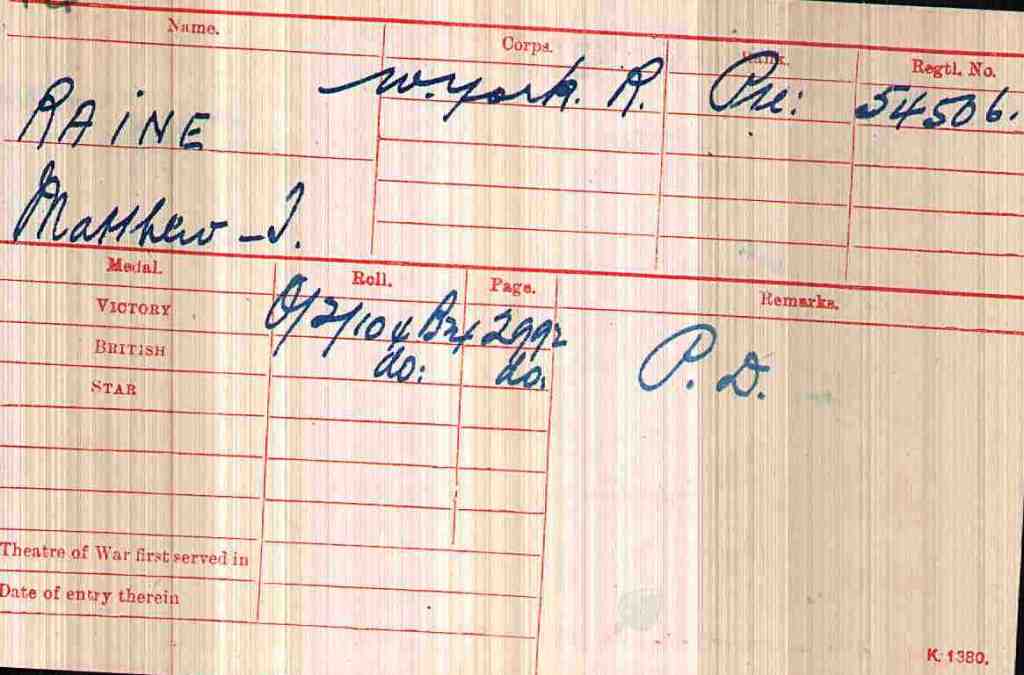 Name. Corps. Rank. Regtl. No.
RAINE W. York. R. Pte: 54506.
Matthew - J.
Medal. Roll. Page. Remarks.
VICTORY O/2/104 B24 2992
BRITISH do: do. P. D.
STAR
Theatre of War first served in
Date of entry therein
K. 1380.